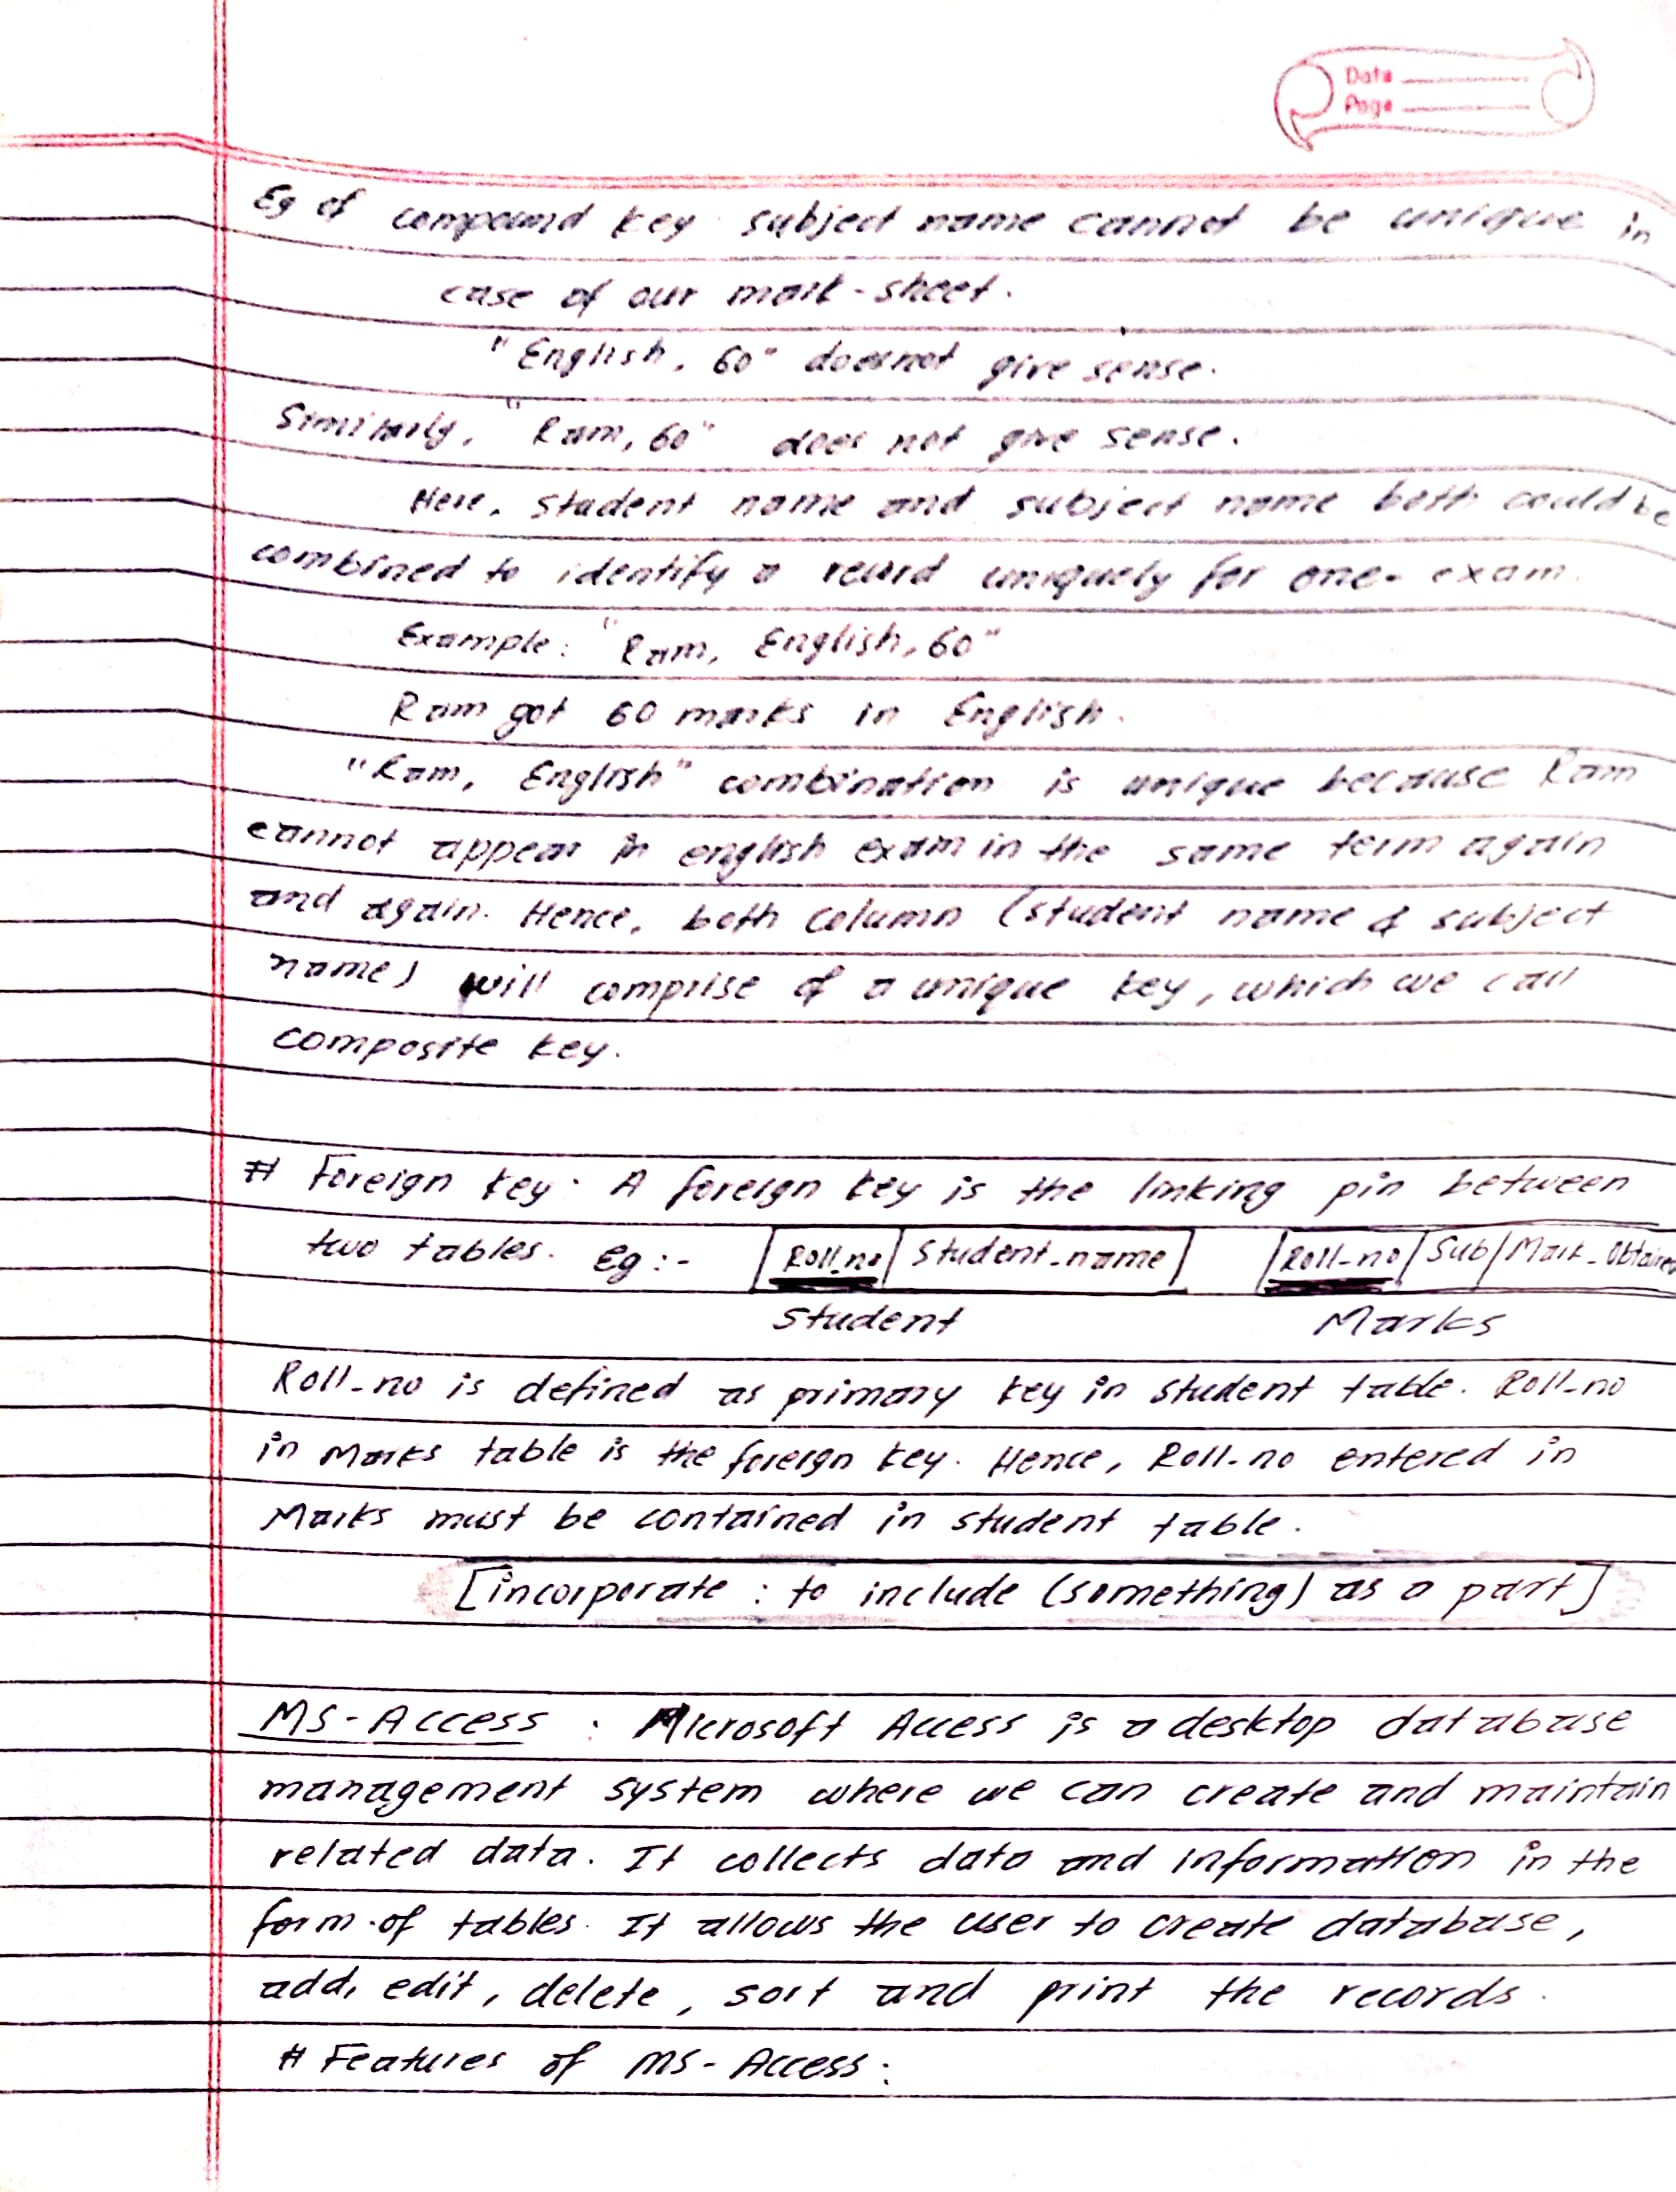 Date
Page
Eg of compound key subject name cannot be unique in
case of our mark-sheet.
"English, 60" doesnot give sense.
Similarly, "Ram, 60" does not give sense.
Here, student name and subject name both could be
combined to identify a record uniquely for one- exam.
Example: "Ram, English, 60"
Ram got 60 marks in English.
"Ram, English" combination is unique because Ram
cannot appear in english exam in the same term again
and again. Hence, both column (student name & subject
name) will comprise of a unique key, which we call
composite key.
# Foreign key. A foreign key is the linking pin between
two tables. Eg:- Roll_no Student_name Roll_no Sub Mark_Obtained
Student Marks
Roll_no is defined as primary key in student table. Roll_no
in Marks table is the foreign key. Hence, Roll_no entered in
Marks must be contained in student table.
[incorporate : to include (something) as a part]
MS-Access : Microsoft Access is a desktop database
management system where we can create and maintain
related data. It collects data and information in the
form of tables. It allows the user to create database,
add, edit, delete, sort and print the records.
# Features of MS-Access: